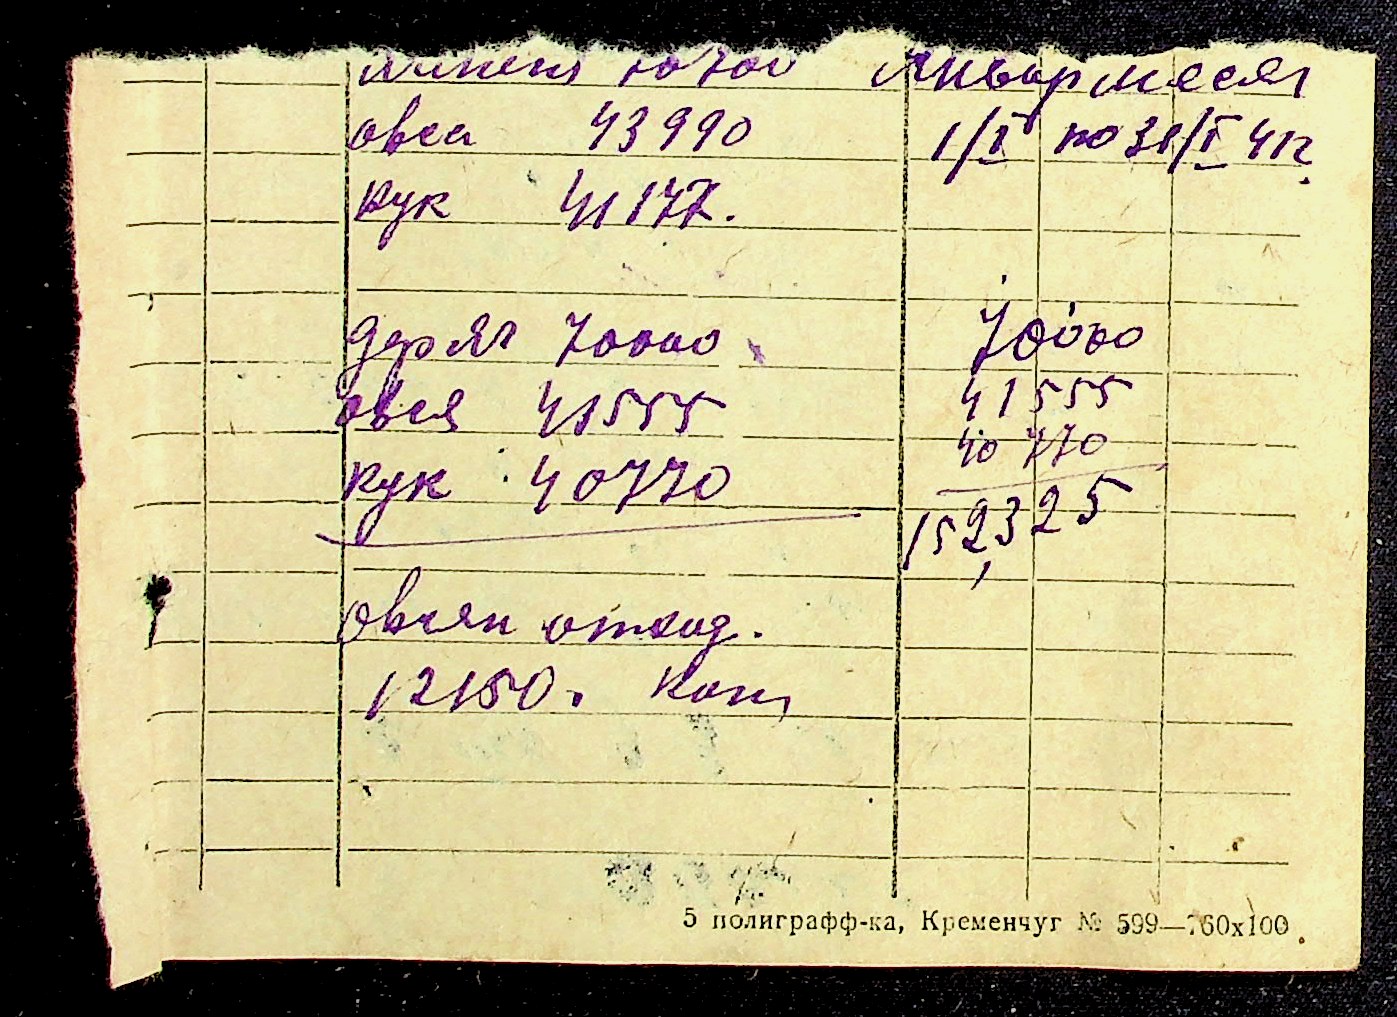 Январ месяц
овса 43990 1/I по 31/I 41г.
кук 41177.
держ 70000. 70000
овса 41555 41555
кук 40770 40770
152,325
овсян отход.
12150.
5 полиграфф-ка, Кременчуг № 599—760х100